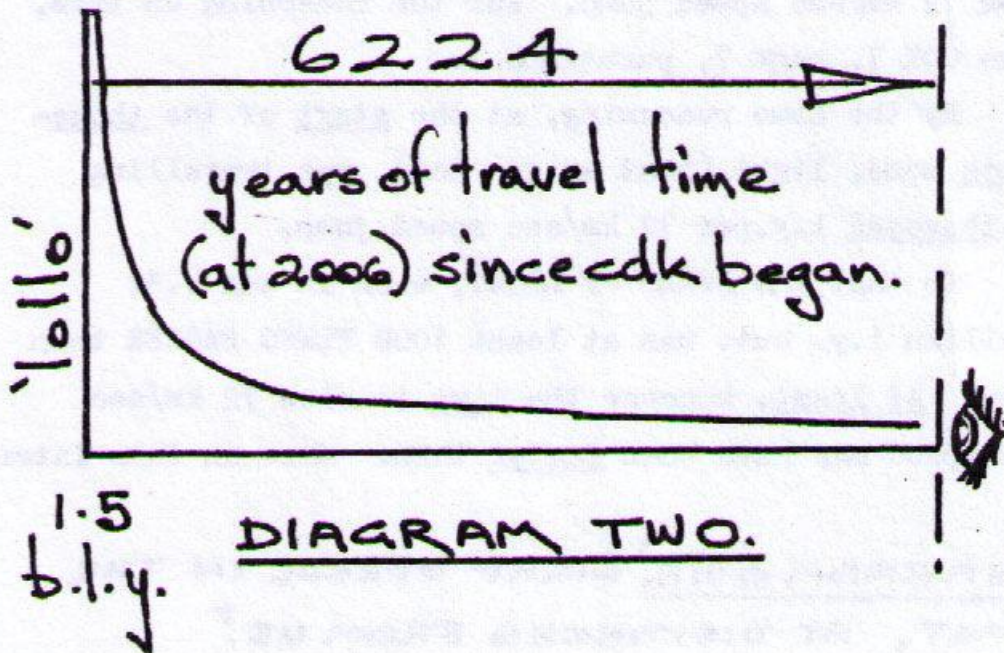 6224
years of travel time
(at 2006) since cdk began.
1.5
b.l.y.
DIAGRAM TWO.